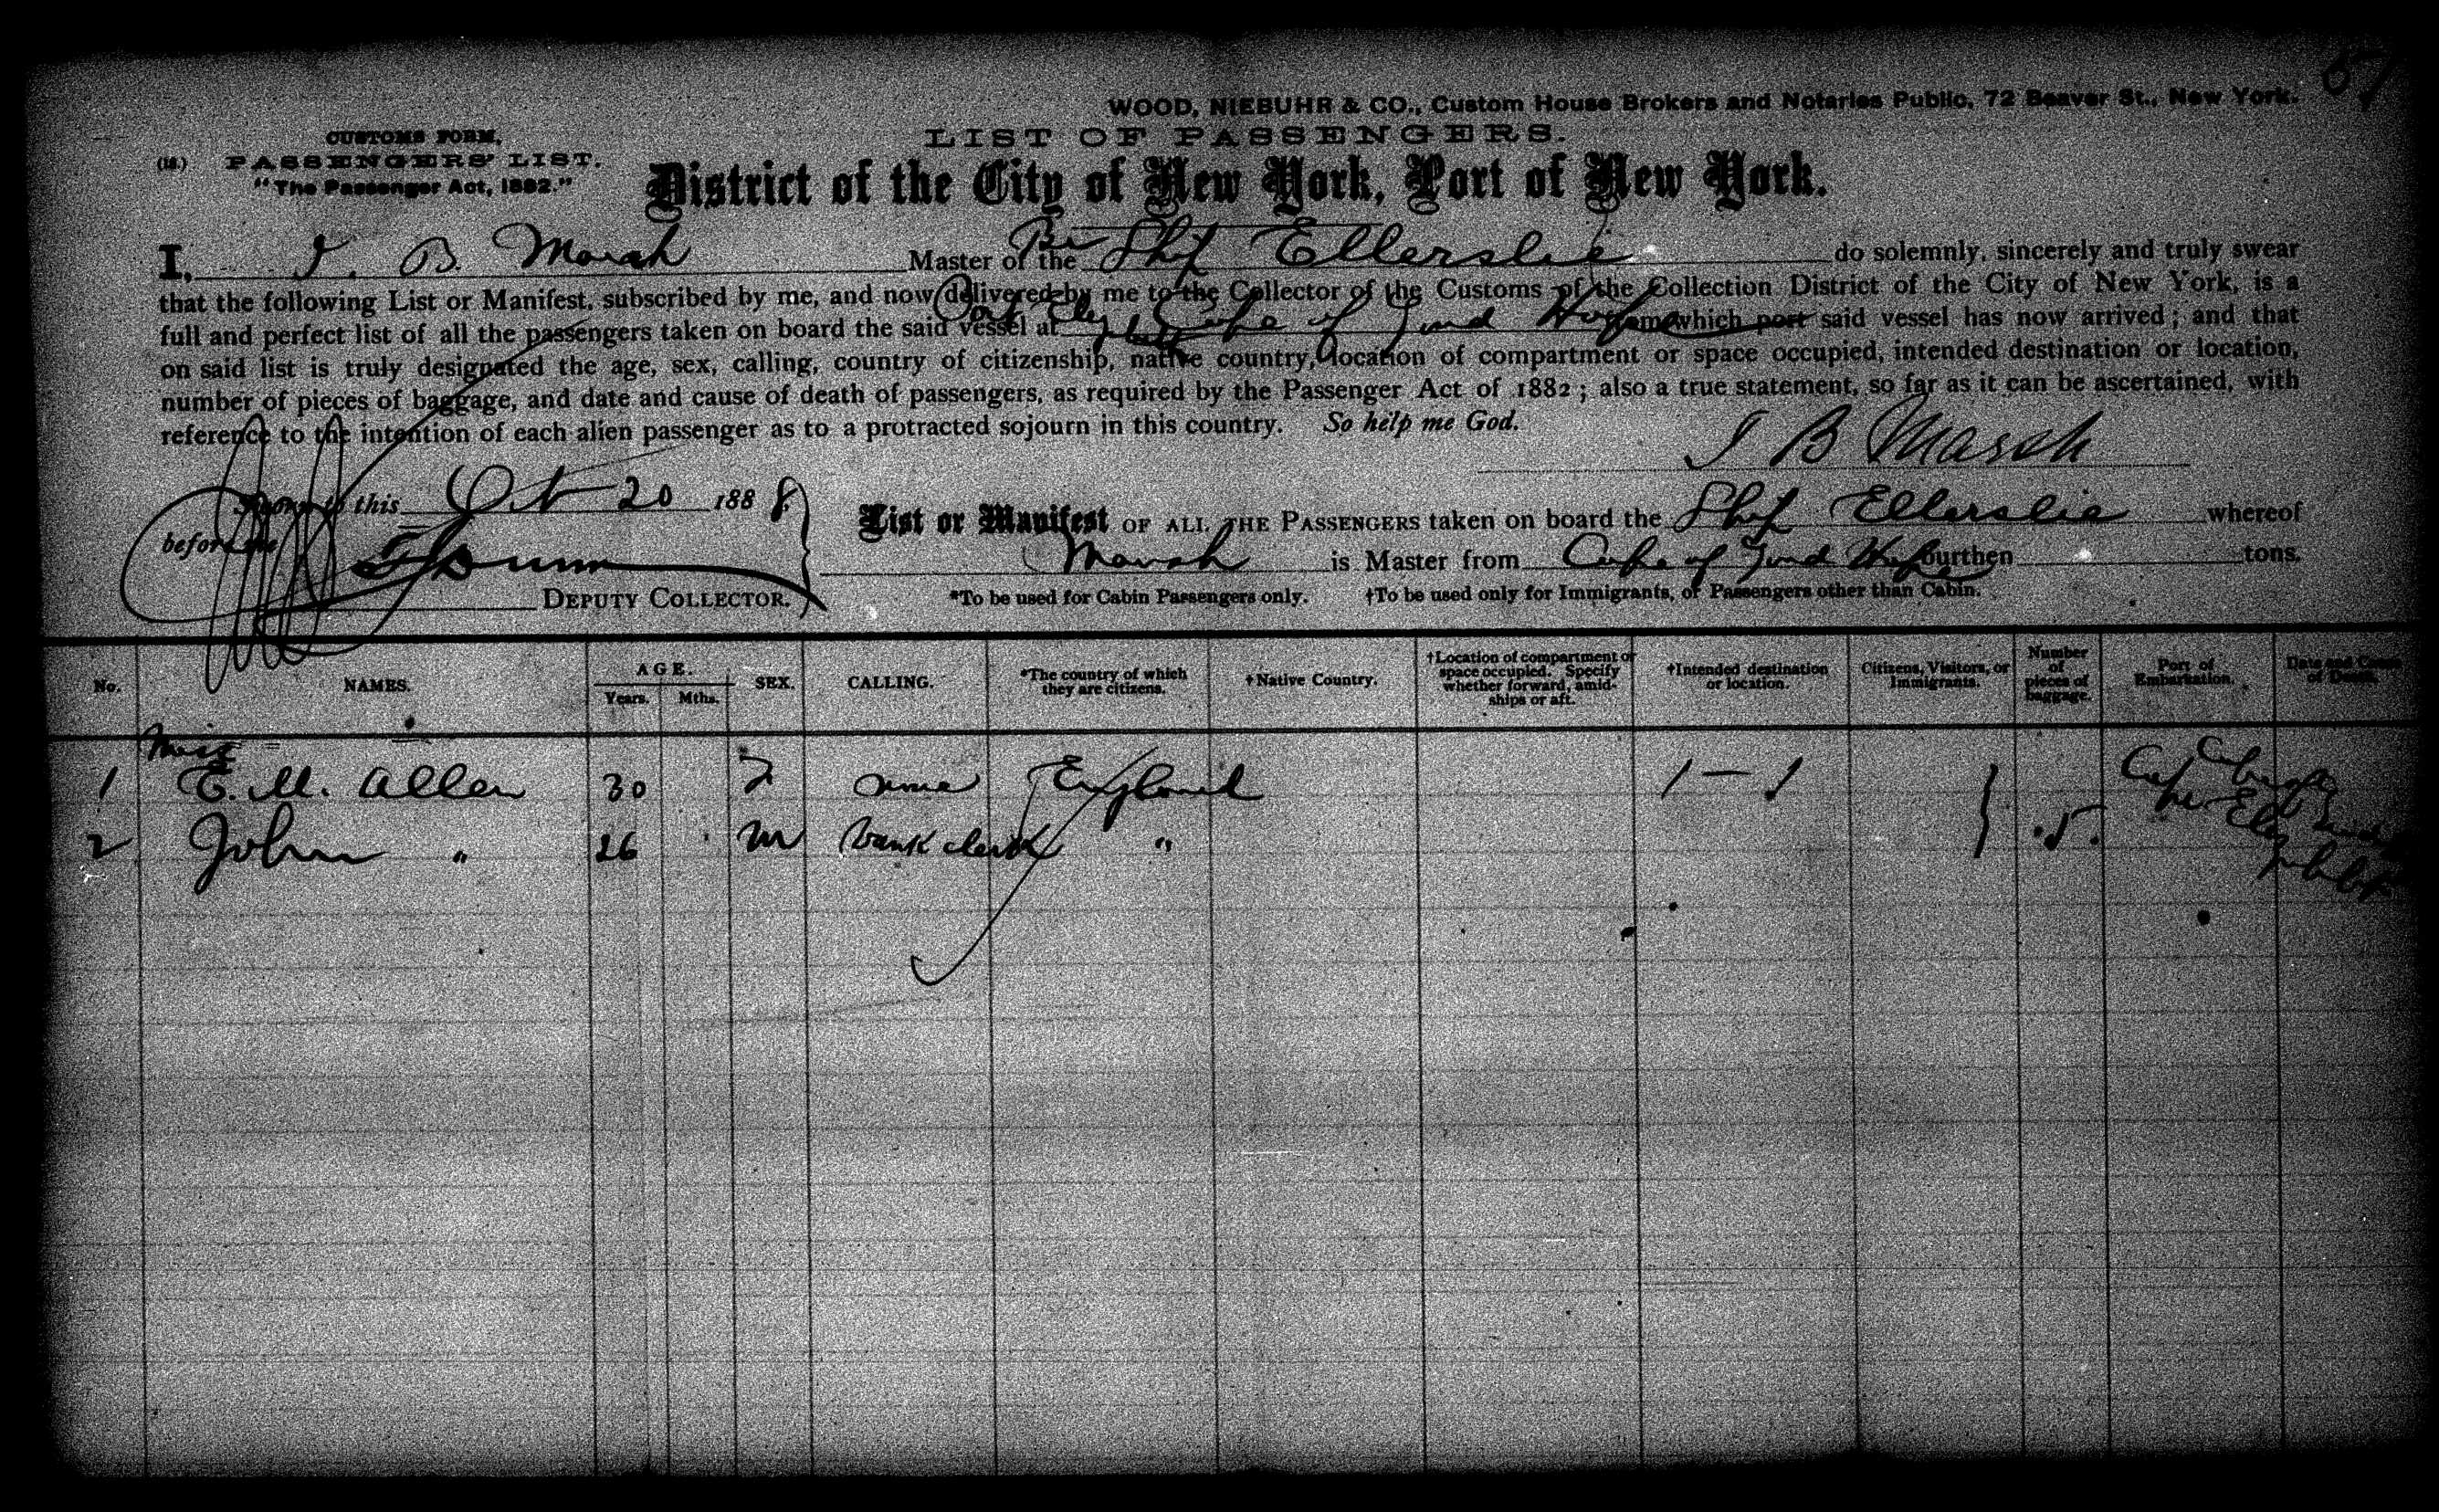 57
WOOD, NIEBUHR & CO., Custom House Brokers and Notaries Public, 72 Beaver St., New York.
CUSTOMS FORM,
LIST OF PASSENGERS.
PASSENGERS' LIST.
"The Passenger Act, 1882."
District of the City of New York, Port of New York.
I, J. B. Marsh Master of the Br Ship Ellerslie do solemnly, sincerely and truly swear
that the following List or Manifest, subscribed by me, and now delivered by me to the Collector of the Customs of the Collection District of the City of New York, is a
full and perfect list of all the passengers taken on board the said vessel at Cape of Good Hope from which port said vessel has now arrived; and that
on said list is truly designated the age, sex, calling, country of citizenship, native country, location of compartment or space occupied, intended destination or location,
number of pieces of baggage, and date and cause of death of passengers, as required by the Passenger Act of 1882; also a true statement, so far as it can be ascertained, with
reference to the intention of each alien passenger as to a protracted sojourn in this country. So help me God.
J B Marsh
Sworn to this Oct 20 1888
List or Manifest OF ALL THE PASSENGERS taken on board the Ship Ellerslie whereof
before me
Marsh is Master from Cape of Good Hope burthen tons.
DEPUTY COLLECTOR.
*To be used for Cabin Passengers only. †To be used only for Immigrants, or Passengers other than Cabin.
No. NAMES. AGE. Years. Mths. SEX. CALLING. *The country of which they are citizens. †Native Country. †Location of compartment or space occupied. Specify whether forward, amidships or aft. †Intended destination or location. Citizens, Visitors, or Immigrants. Number of pieces of baggage. Port of Embarkation. Date and Cause of Death.
Miss
1 E. M. Allen 30 F none England
2 John " 26 M bank clerk " 5.